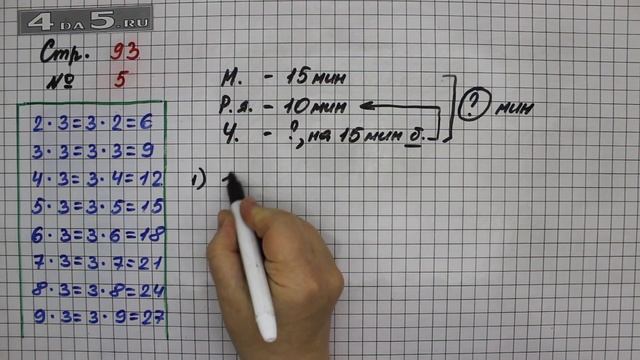 4 DA 5.RU
Стр. 93
№ 5
2·3=3·2=6
3·3=3·3=9
4·3=3·4=12
5·3=3·5=15
6·3=3·6=18
7·3=3·7=21
8·3=3·8=24
9·3=3·9=27
М. - 15 мин
Р.я. - 10 мин
Ч. - ?, на 15 мин б.
? мин
1) 1